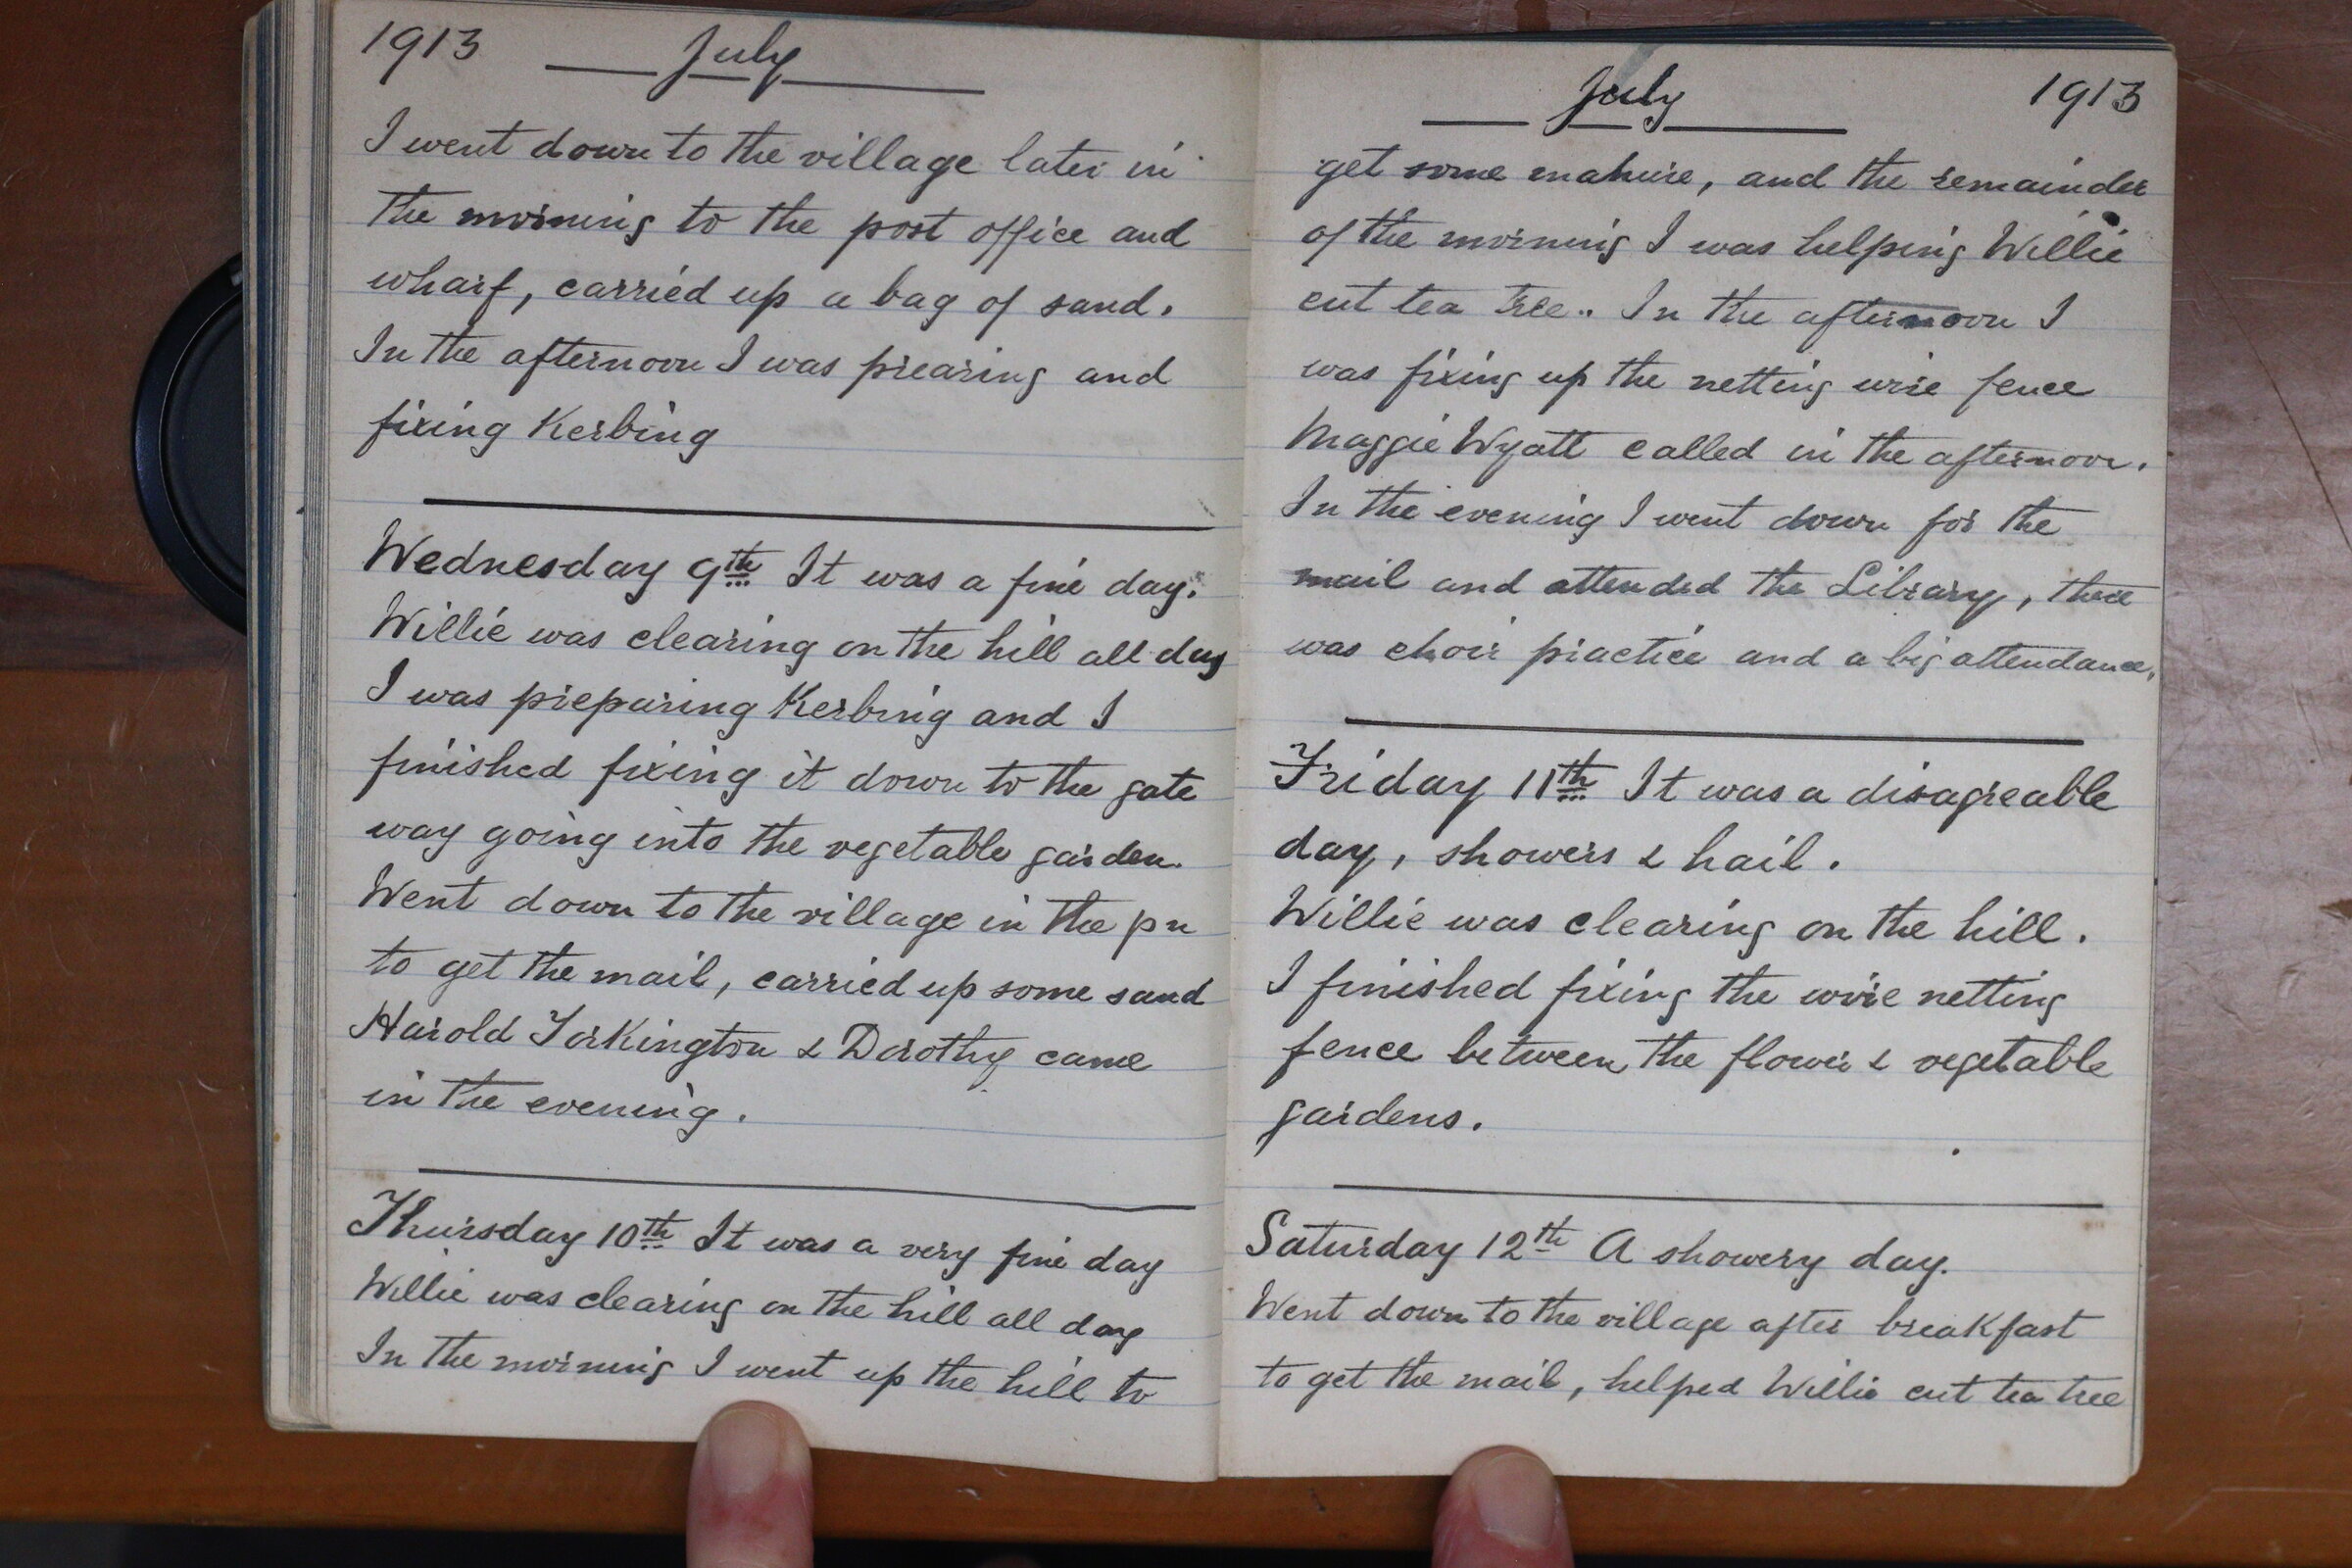 1913 July
I went down to the village later in
the morning to the post office and
wharf, carried up a bag of sand.
In the afternoon I was prearing and
fixing Kerbing
Wednesday 9th It was a fine day.
Willie was clearing on the hill all day
I was preparing Kerbing and I
finished fixing it down to the gate
way going into the vegetable garden.
Went down to the village in the pm
to get the mail, carried up some sand
Harold Torkington & Dorothy came
in the evening.
Thursday 10th It was a very fine day
Willie was clearing on the hill all day
In the morning I went up the hill to
July 1913
get some manure, and the remainder
of the morning I was helping Willie
cut tea tree.. In the afternoon I
was fixing up the netting wire fence
Maggie Wyatt called in the afternoon.
In the evening I went down for the
mail and attended the Library, there
was choir practice and a big attendance.
Friday 11th It was a disagreable
day, showers & hail.
Willie was clearing on the hill.
I finished fixing the wire netting
fence between the flower & vegetable
gardens.
Saturday 12th A showery day.
Went down to the village after breakfast
to get the mail, helped Willie cut tea tree